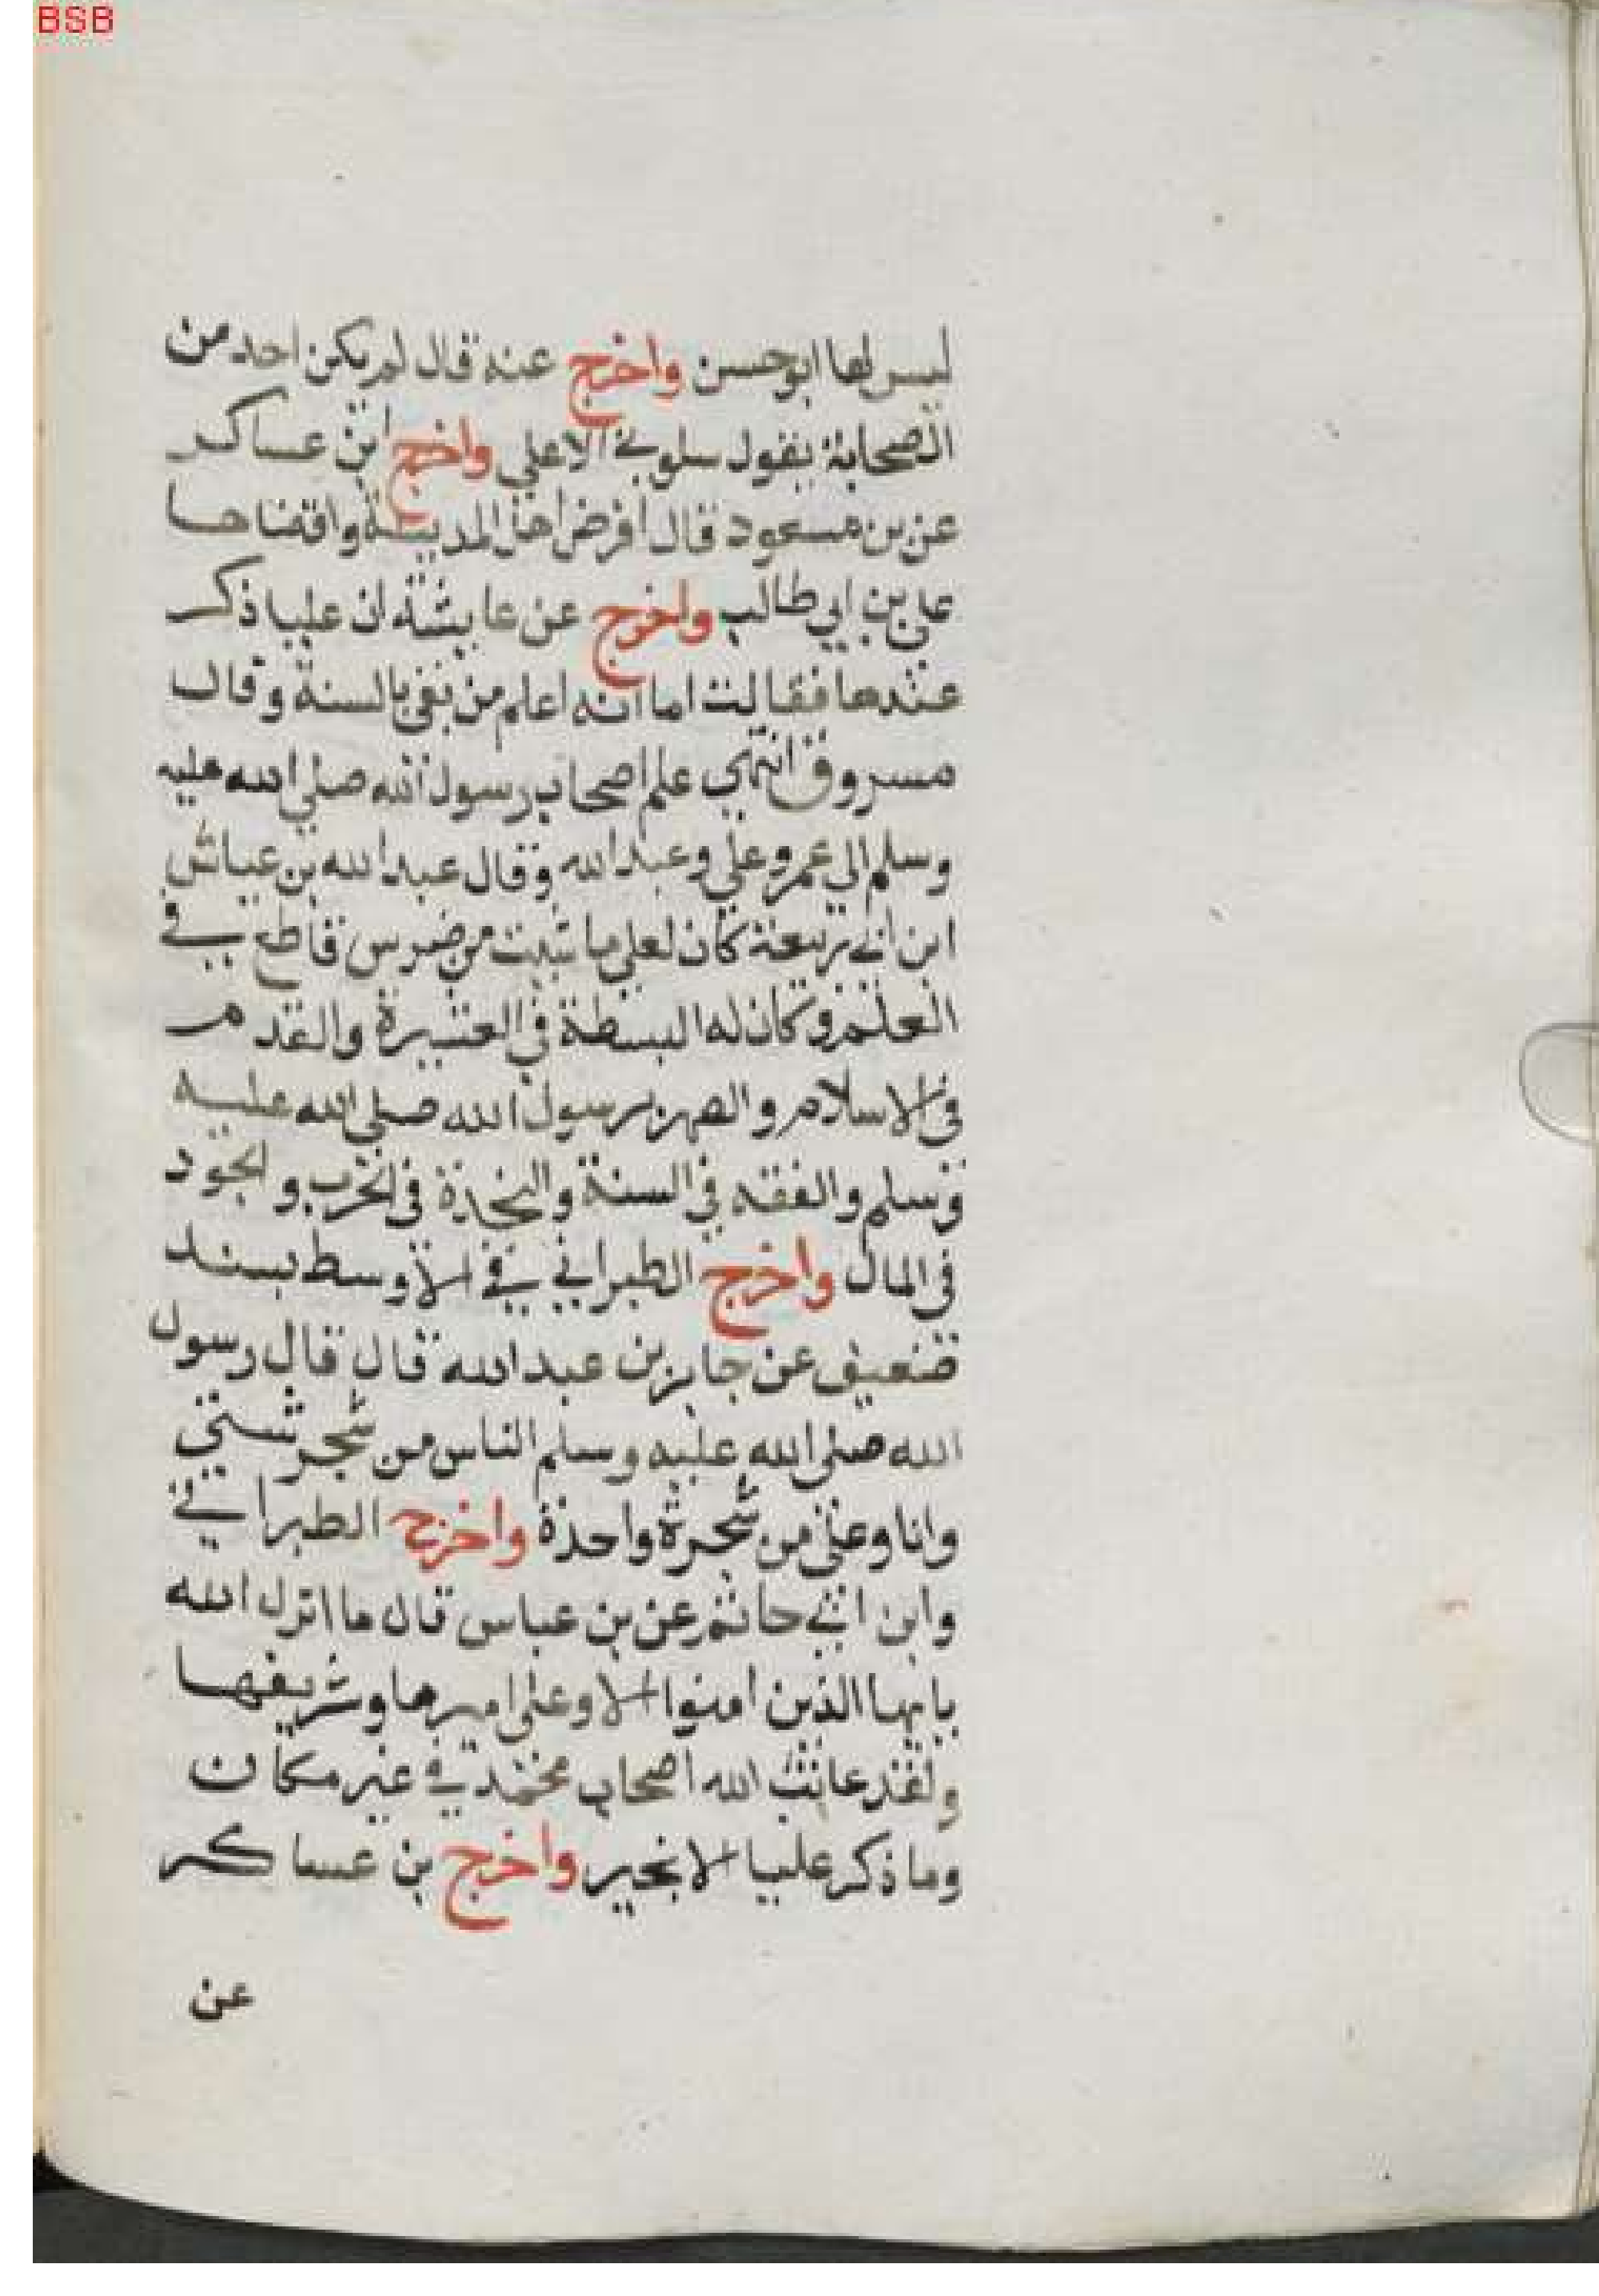 BSB
ليس لها ابو حسن واخرج عنه قال لم يكن احد من
الصحابة يقول سلوني الا علي واخرج ابن عساكر
عن بن مسعود قال افرض اهل المدينة واقضاها
علي بن ابي طالب واخرج عن عايشة ان عليا ذكر
عندها فقالت اما انه اعلم من بقي بالسنة وقال
مسروق انتهي علم اصحاب رسول الله صلي الله عليه
وسلم الي عمر وعلي وعبد الله وقال عبد الله بن عياش
ابن ابي ربيعة كان لعلي ما شيت من ضرس قاطع في
العلم وكان له البسطة في العشيرة والقدم
في الاسلام والصهر برسول الله صلي الله عليه
وسلم والفقه في السنة والنجدة في الحرب والجود
في المال واخرج الطبراني في الاوسط بسند
ضعيف عن جابر بن عبد الله قال قال رسول
الله صلي الله عليه وسلم الناس من شجر شتي
وانا وعلي من شجرة واحدة واخرج الطبراني
وابن ابي حاتم عن بن عباس قال ما انزل الله
يايها الذين امنوا الا وعلي اميرها وشريفها
ولقد عاتب الله اصحاب محمد في غير مكان
وما ذكر عليا الا بخير واخرج بن عساكر
عن